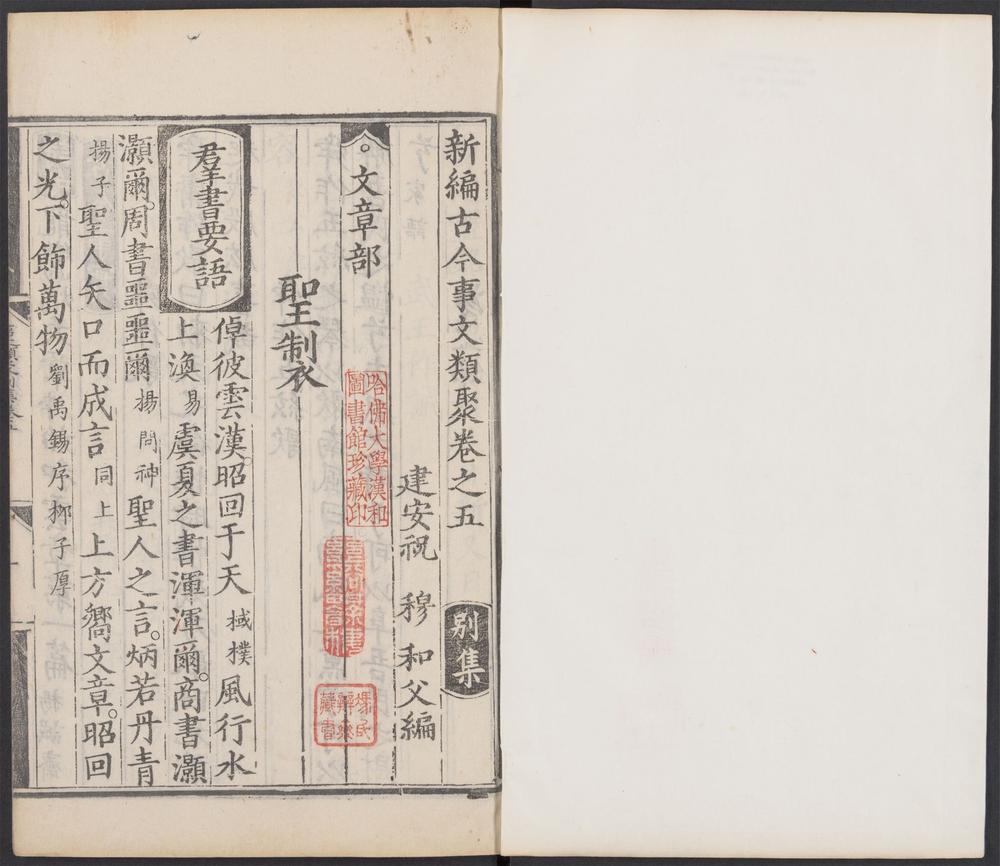 新編古今事文類聚卷之五
別集
建安祝 穆 和父編
文章部
聖制衣
羣書要語
倬彼雲漢昭回于天棫樸風行水
上渙易虞夏之書渾渾爾商書灝
灝爾周書噩噩爾揚問神聖人之言炳若丹青
揚子聖人矢口而成言同上上方嚮文章昭回
之光下飾萬物劉禹錫序柳子厚
哈佛大學漢和
圖書館珍藏印